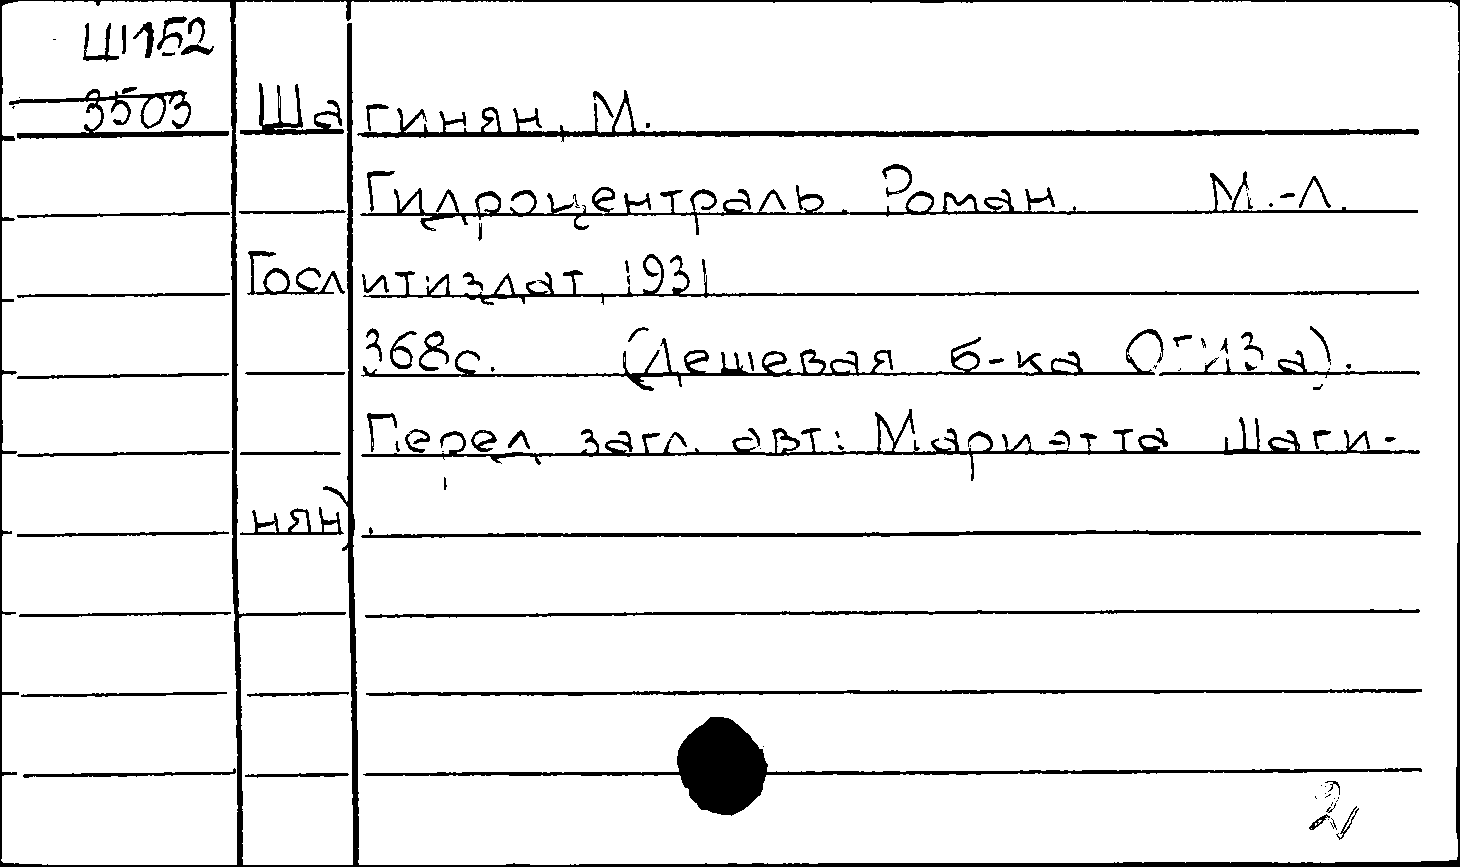 Ш152
3503
Шагинян, М.
Гидроцентраль. Роман. М.-Л.
Гослитиздат, 1931
368с. (Дешевая б-ка ОГИЗа).
Перед загл. авт: Мариэтта Шаги-
нян).
2